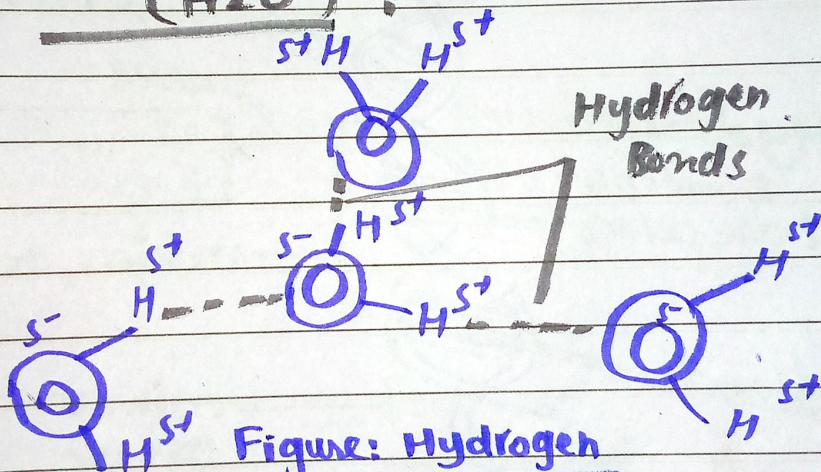 (H2O) :
S+ H H S+
O
Hydrogen
Bonds
H S+
S-
O
S+
H
H S+
S-
O
H S+
S-
O
H S+
H S+
Figure: Hydrogen